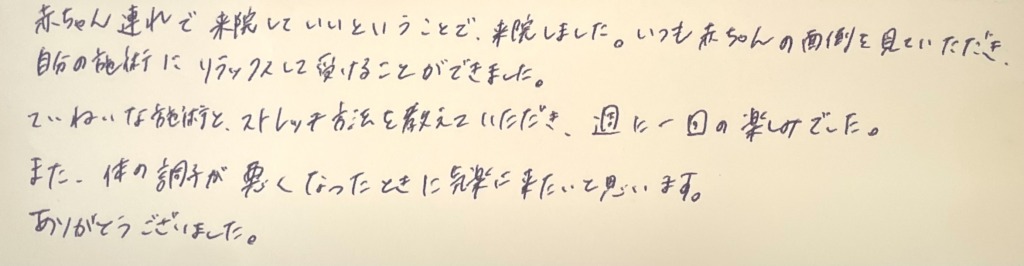 赤ちゃん連れで来院していいということで、来院しました。いつも赤ちゃんの面倒を見ていただき、
自分の施術にリラックスして受けることができました。
ていねいな施術と、ストレッチ方法を教えていただき、週に一回の楽しみでした。
また、体の調子が悪くなったときに気楽に来たいと思います。
ありがとうございました。